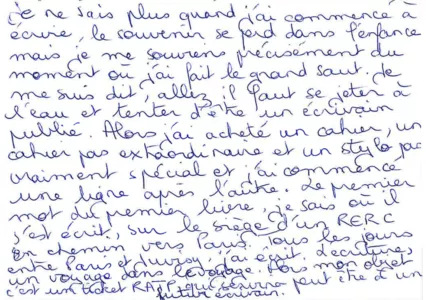 Je ne sais plus quand j'ai commencé à
écrire, le souvenir se perd dans l'enfance
mais je me souviens précisément du
moment où j'ai fait le grand saut. Je
me suis dit, allez il faut se jeter à
l'eau et tenter d'être un écrivain
publié. Alors j'ai acheté un cahier, un
cahier pas extraordinaire et un stylo pas
vraiment spécial et j'ai commencé
une ligne après l'autre. Le premier
mot du premier livre, je sais où il
s'est écrit, sur le siège d'un RER C
en chemin vers Paris. Tous les jours
entre Paris et Juvisy j'ai écrit. L'écriture,
un voyage dans le voyage. Alors mon objet
c'est un ticket RATP qui servira peut être à un
futur écrivain.